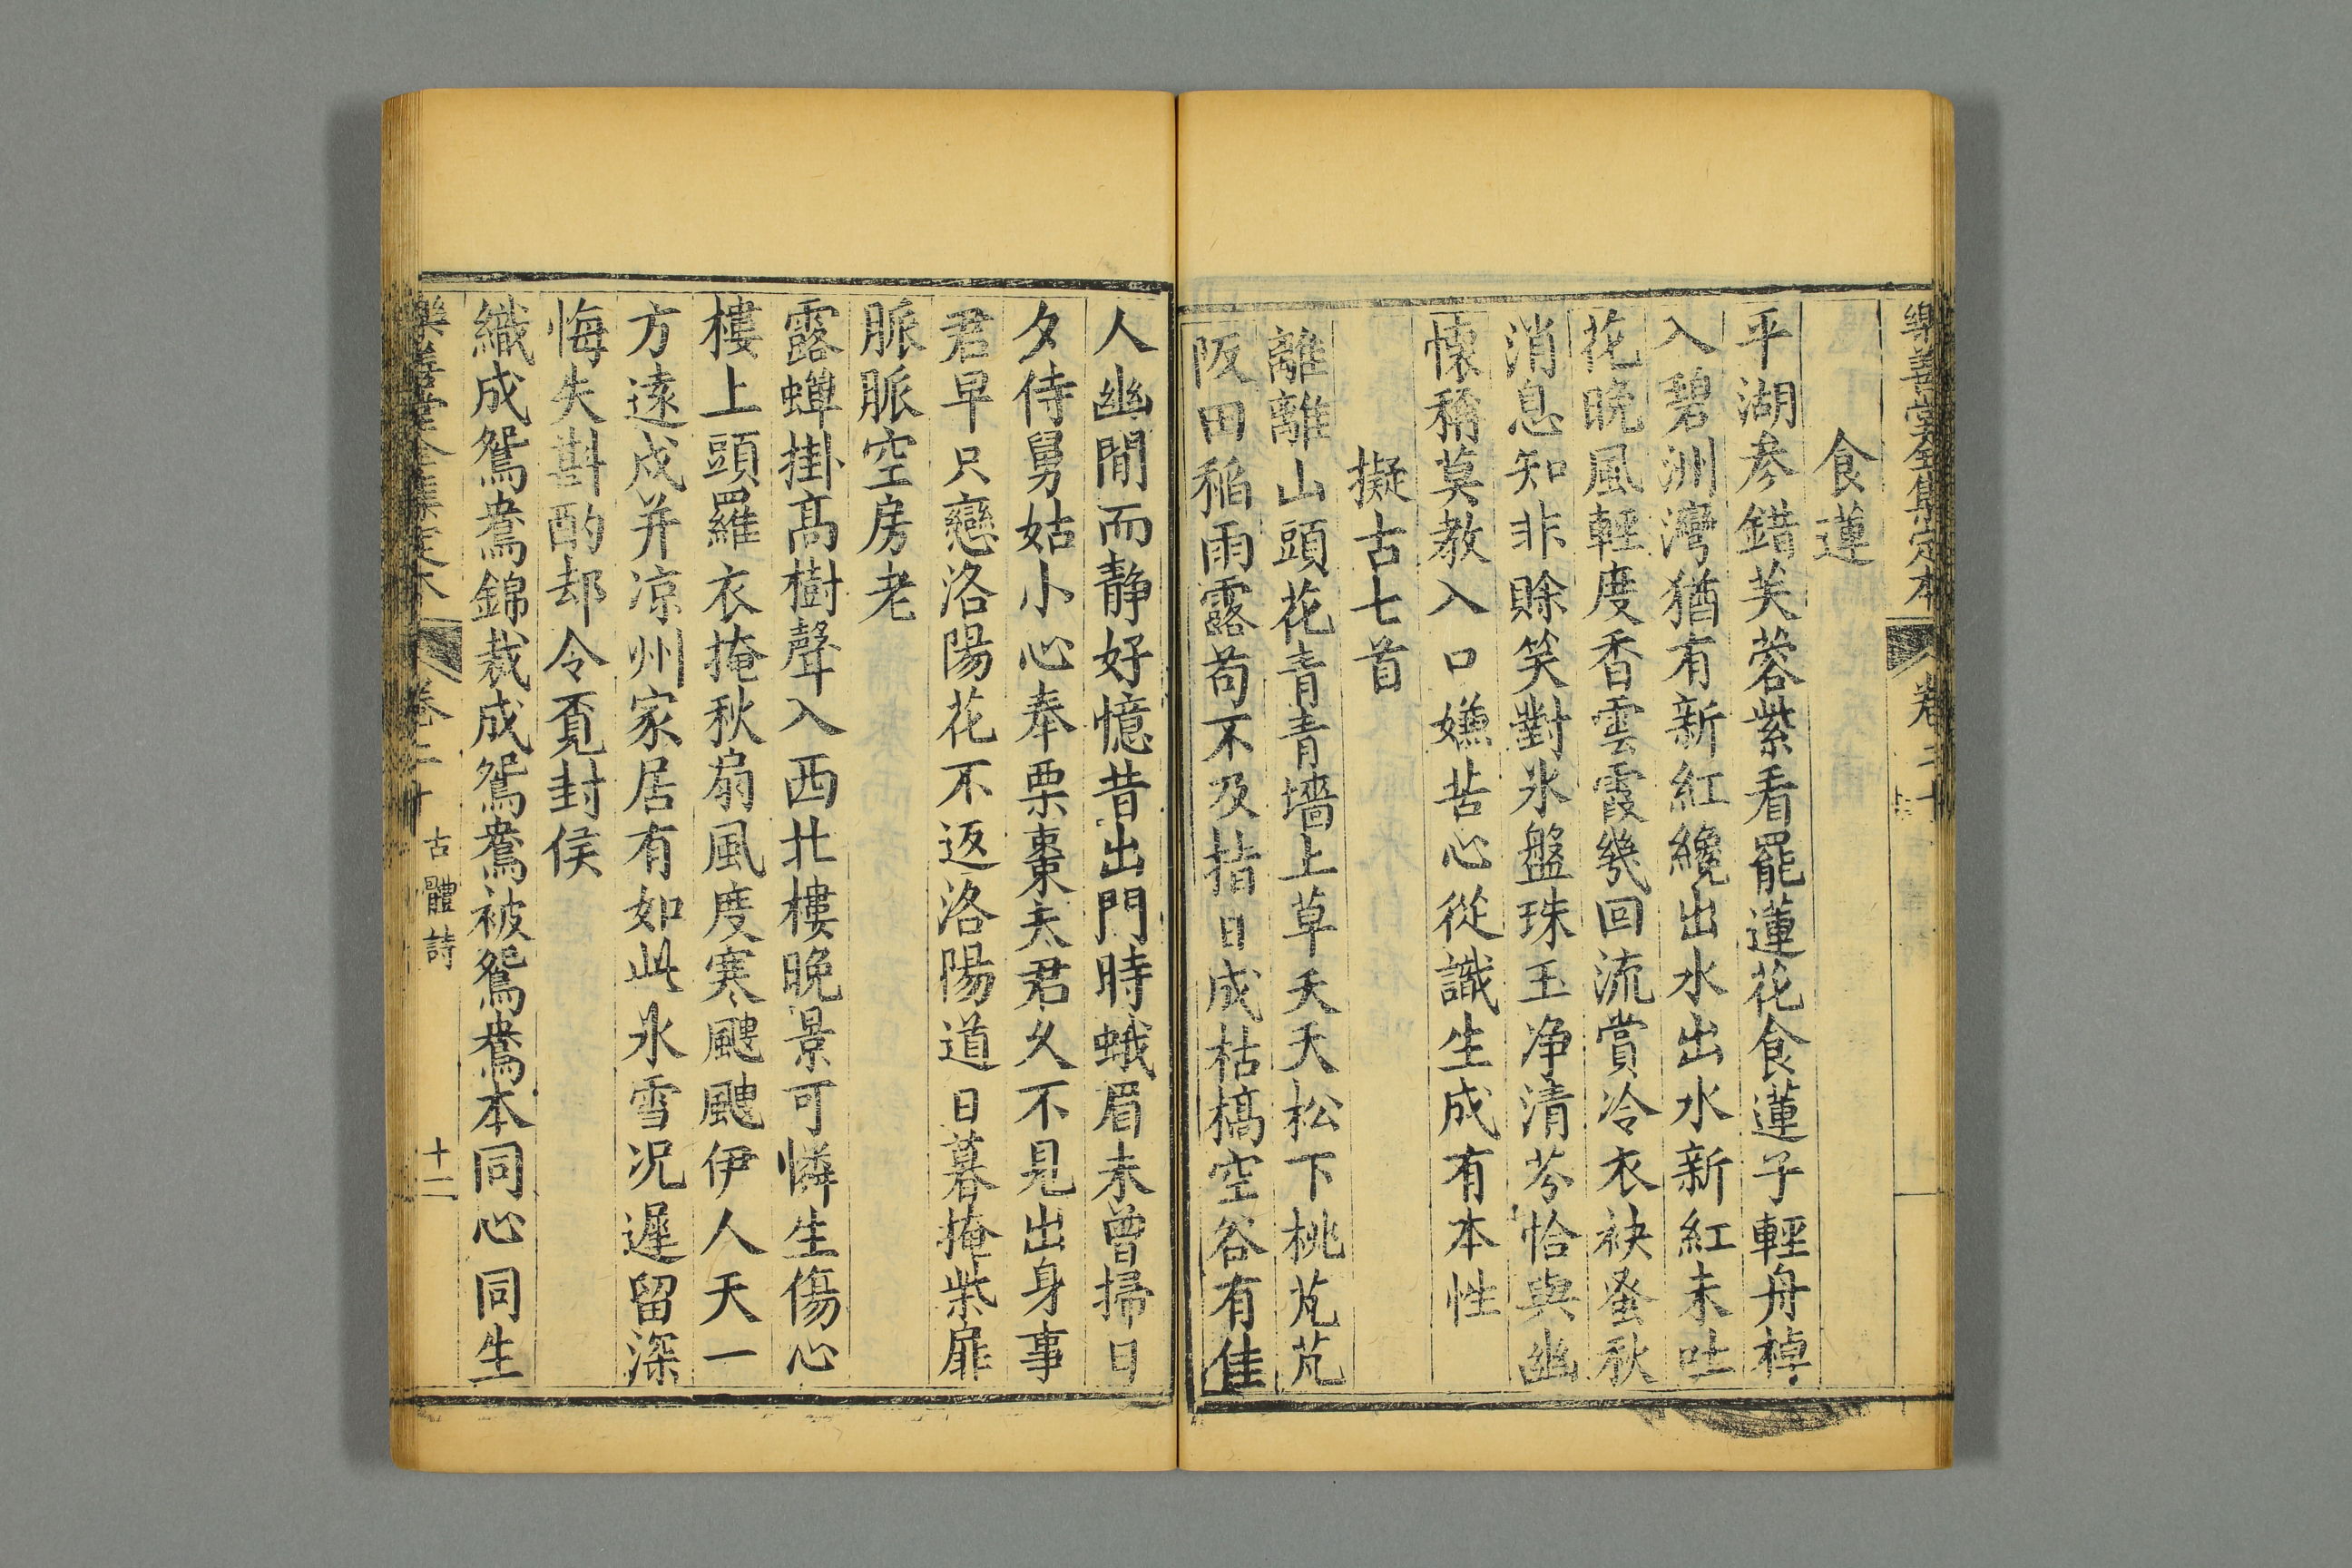 樂善堂全集定本 卷二十
食蓮
平湖參錯芙蓉紫看罷蓮花食蓮子輕舟棹
入碧洲灣猶有新紅纔出水出水新紅未吐
花晩風輕度香雲霞幾回流賞冷衣袂蚤秋
消息知非賖笑對氷盤珠玉净清芬恰與幽
懷稱莫教入口嫌苦心從識生成有本性
擬古七首
離離山頭花青青墻上草夭夭松下桃芃芃
阪田稻雨露苟不及指日成枯槁空谷有佳
人幽閒而静好憶昔出門時蛾眉未曾掃日
夕侍舅姑小心奉栗棗夫君久不見出身事
君早只戀洛陽花不返洛陽道日暮掩柴扉
脈脈空房老
露蟬掛髙樹聲入西北樓晩景可憐生傷心
樓上頭羅衣掩秋扇風度寒颼颼伊人天一
方逺戍并凉州家居有如此氷雪况遲留深
悔失斟酌却令覓封侯
織成鴛鴦錦裁成鴛鴦被鴛鴦本同心同生
樂善堂全集定本 卷二十 古體詩 十二